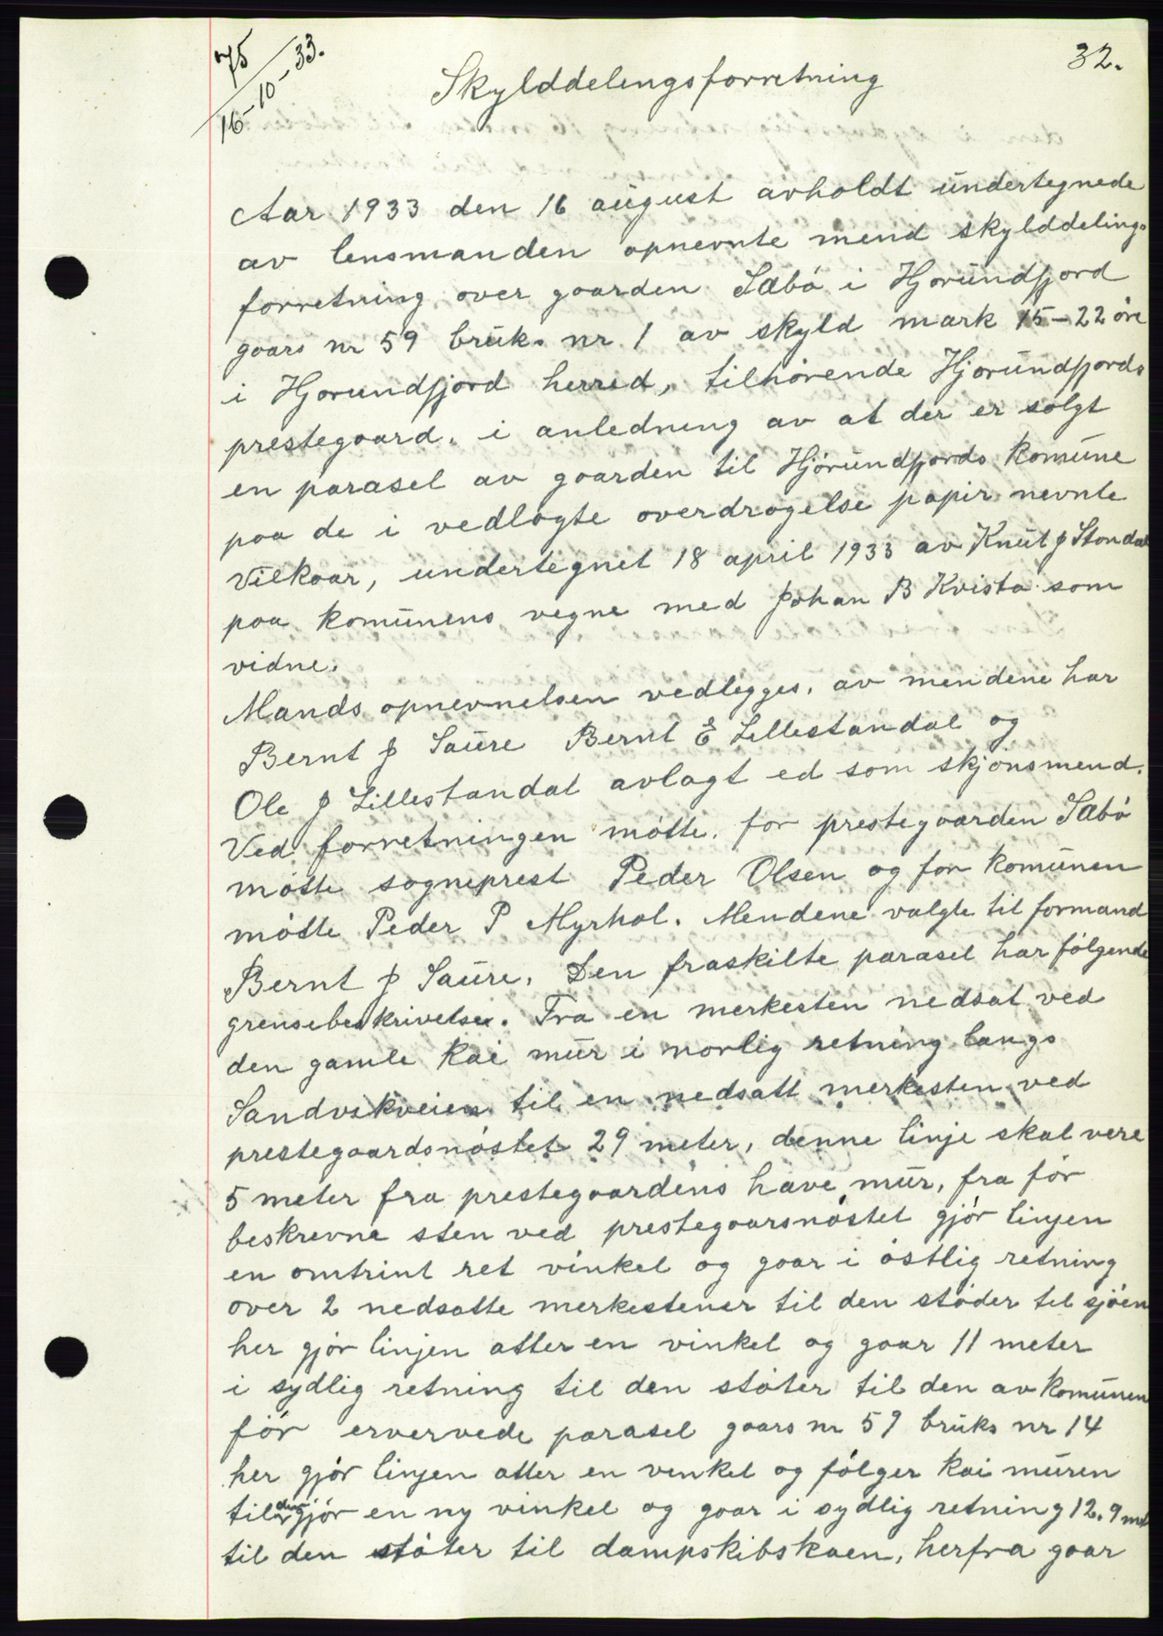 75
16-10-33.
32.
Skylddelingsforretning
Aar 1933 den 16 august avholdt undertegnede
av lensmanden opnevnte mend skylddelings
forretning over gaarden Sæbö i Hjorundfjord
gaars nr 59 bruks nr 1 av skyld mark 15-22 öre
i Hjorundfjord herred, tilhörende Hjorundfjords
prestegaard, i anledning av at der er solgt
en parasel av gaarden til Hjörundfjords Komune
paa de i vedlagte overdragelse papir nevnte
vilkaar, undertegnet 18 april 1933 av Knut J Standal
paa komunens vegne med Johan B Kvistad som
vidne.
Mands opnevnelsen vedlegges, av mendene har
Bernt J Saure Bernt E Lillestandal og
Ole J Lillestandal avlagt ed som skjönsmend.
Ved forretningen mötte. for prestegaarden Sæbö
mötte sogneprest Peder Olsen og for Komunen
mötte Peder P Myrhol. Mendene valgte til formand
Bernt J Saure. Den fraskilte parasel har fölgende
grensebeskrivelse. Fra en merkesten nedsat ved
den gamle Kai mur i norlig retning langs
Sandvikveien til en nedsatt merkesten ved
prestegaardsnöstet 29 meter, denne linje skal vere
5 meter fra prestegaardens have mur, fra för
beskrevne sten ved prestegaarsnöstet gjör linjen
en omtrint ret vinkel og gaar i östlig retning
over 2 nedsatte merkestener til den stöder til sjöen
her gjör linjen atter en vinkel og gaar 11 meter
i sydlig retning til den stöter til den av Komunen
för ervervede parasel gaars nr 59 bruks nr 14
her gjör linjen atter en vinkel og fölger kai muren
til den gjör en ny vinkel og gaar i sydlig retning 12.9 met
til den stöter til dampskibskaien, herfra gaar